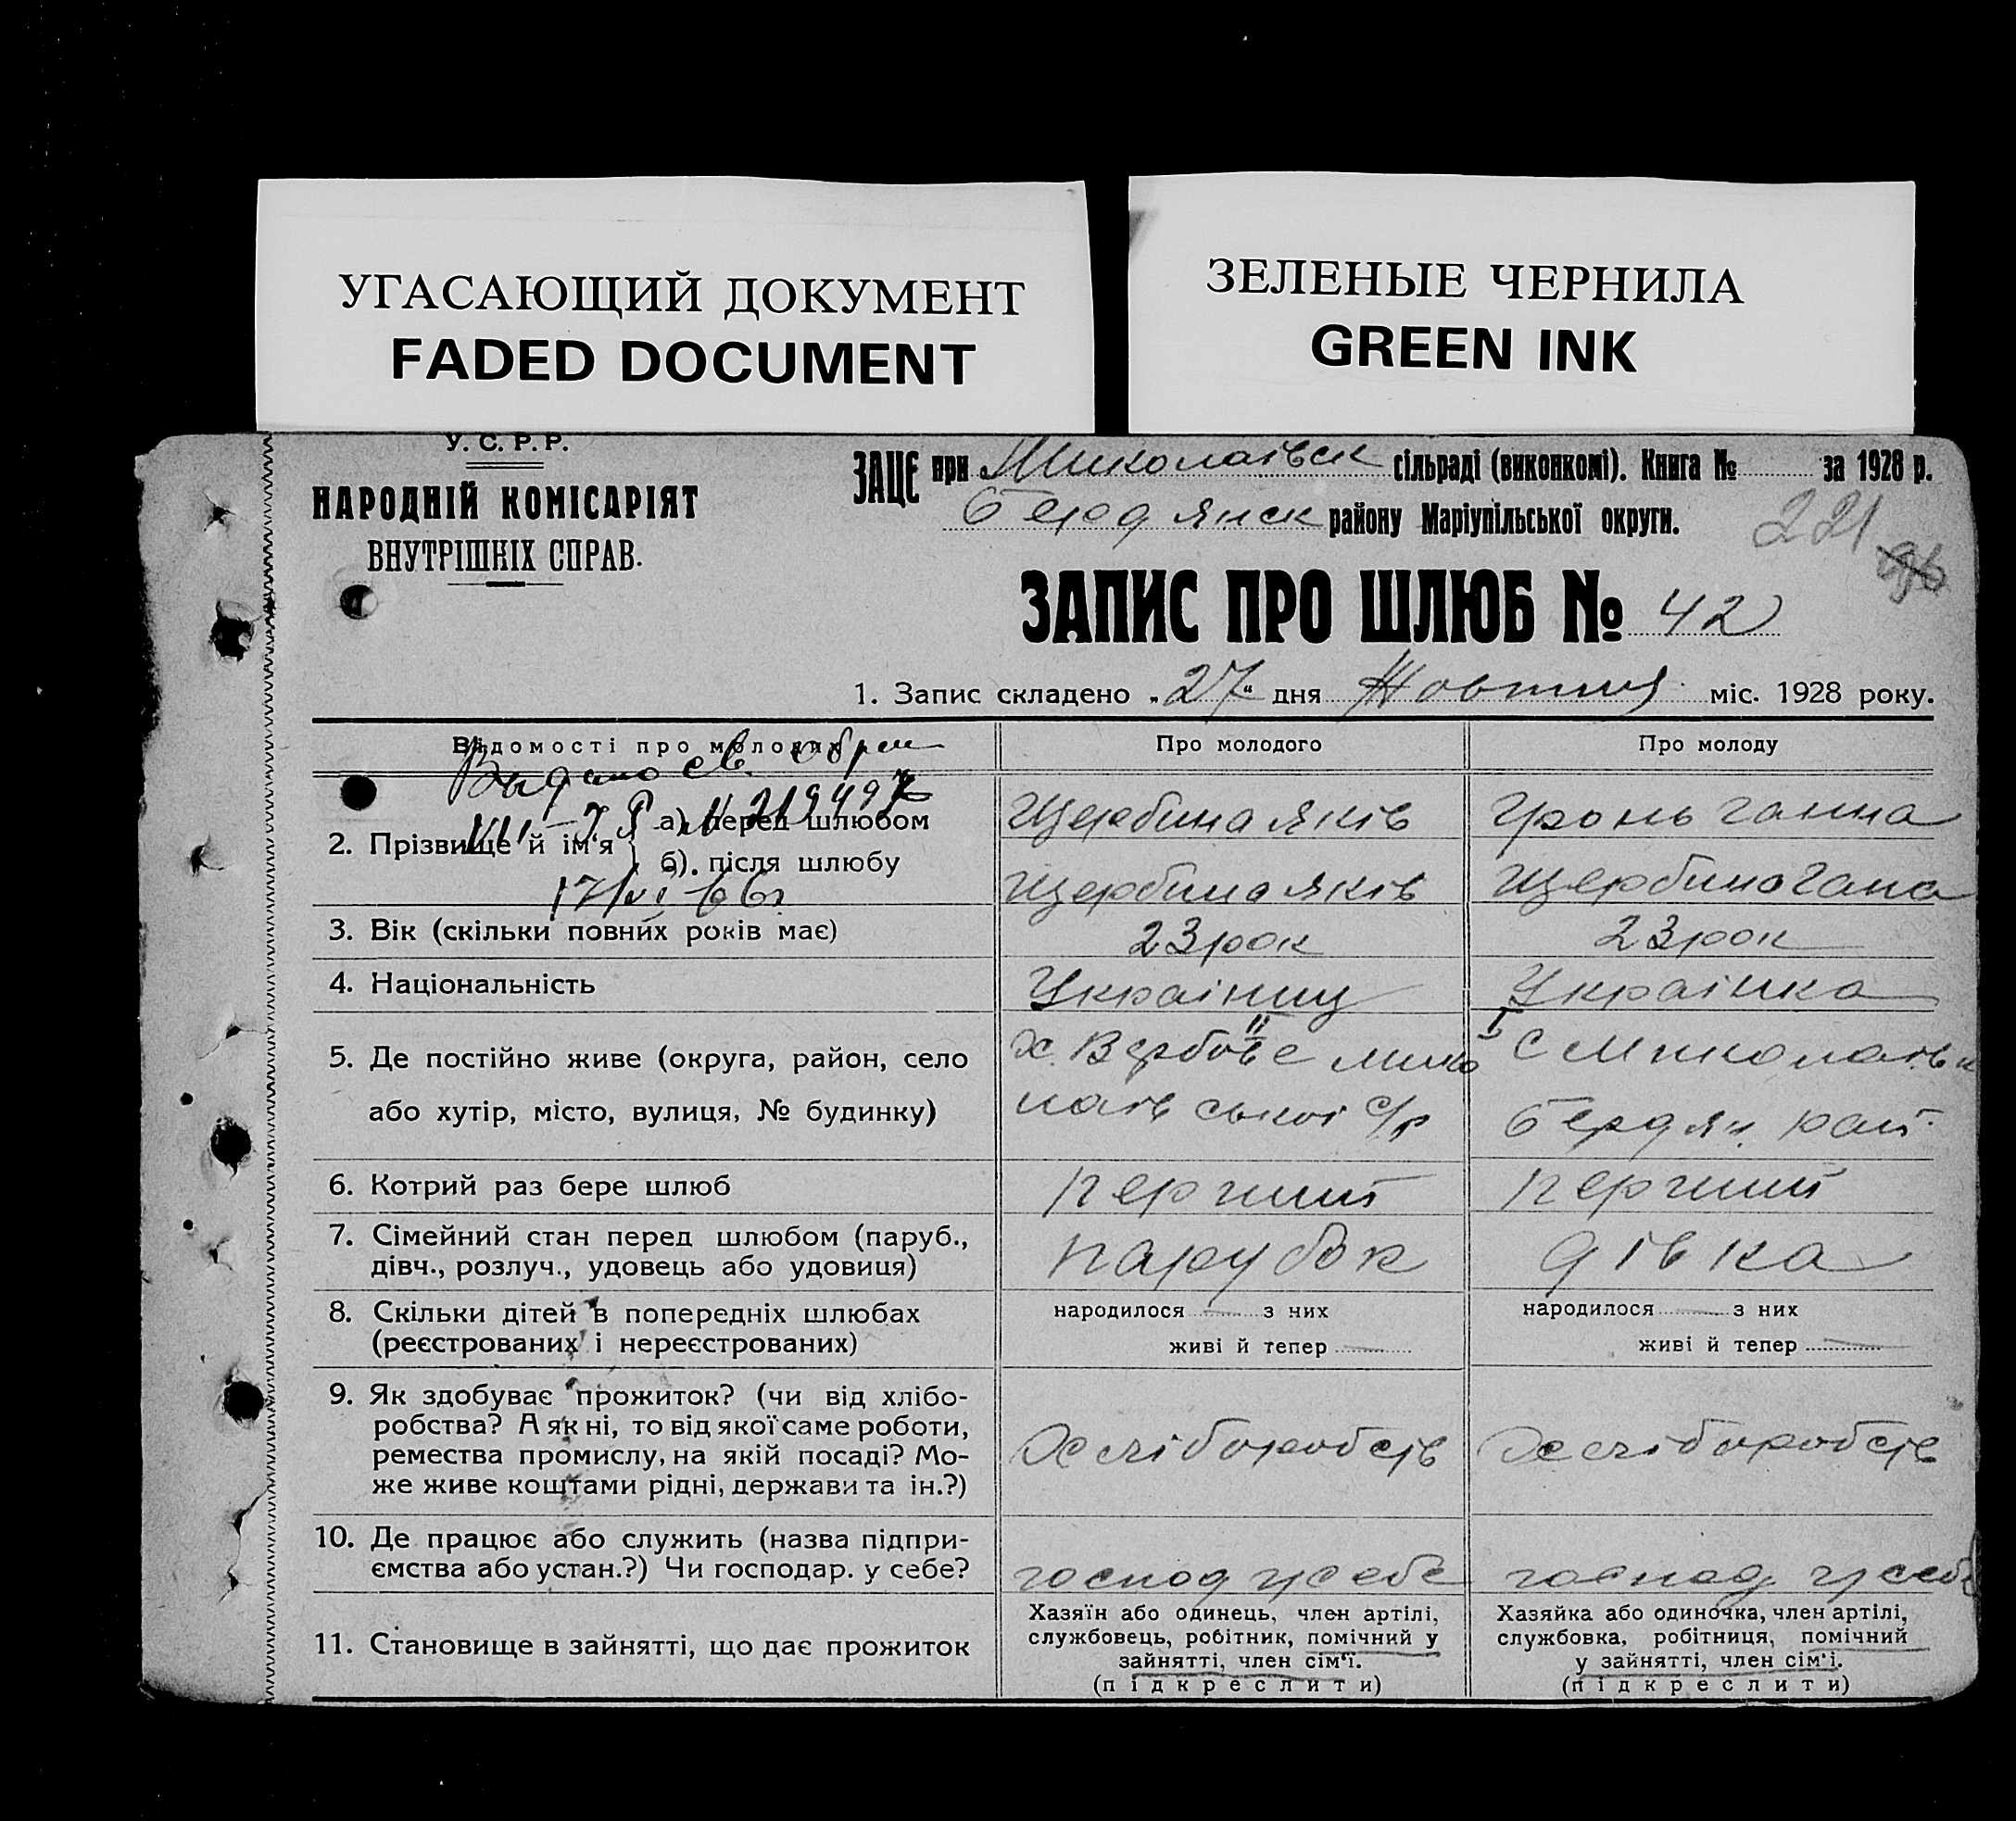 УГАСАЮЩИЙ ДОКУМЕНТ
FADED DOCUMENT
ЗЕЛЕНЫЕ ЧЕРНИЛА
GREEN INK
У. С. Р. Р.
НАРОДНІЙ КОМІСАРІЯТ
ВНУТРІШНІХ СПРАВ.
ЗАЦС при Миколаівск сільраді (виконкомі). Книга № за 1928 р.
Бердянск району Маріупільської округи.
221
ЗАПИС ПРО ШЛЮБ № 42
1. Запис складено „27“ дня Жовтня міс. 1928 року.
Відомості про молодих
Про молодого
Про молоду
Видано св. о браке
№ 219497
17/VI 66г
2. Прізвище й ім'я
а) перед шлюбом
Щербина Яків
Гронь Ганна
б) після шлюбу
Щербина Яків
Щербина Гана
3. Вік (скільки повних років має)
23 рок
23 рок
4. Національність
Украінец
Украінка
5. Де постійно живе (округа, район, село
або хутір, місто, вулиця, № будинку)
х. Вербове II Мико
лаівськоі с/р
с Миколаівк I
Бердян. рай.
6. Котрий раз бере шлюб
перший
перший
7. Сімейний стан перед шлюбом (паруб.,
дівч., розлуч., удовець або удовиця)
парубок
дівка
8. Скільки дітей в попередніх шлюбах
(реєстрованих і нереєстрованих)
народилося з них
живі й тепер
народилося з них
живі й тепер
9. Як здобуває прожиток? (чи від хлібо-
робства? А як ні, то від якої саме роботи,
ремества промислу, на якій посаді? Мо-
же живе коштами рідні, держави та ін.?)
Хліборобств
Хліборобств
10. Де працює або служить (назва підпри-
ємства або устан.?) Чи господар. у себе?
господ у себе
господ у себе
11. Становище в зайнятті, що дає прожиток
Хазяїн або одинець, член артілі,
службовець, робітник, помічний у
зайнятті, член сім'ї.
(підкреслити)
Хазяйка або одиночка, член артілі,
службовка, робітниця, помічний
у зайнятті, член сім'ї.
(підкреслити)